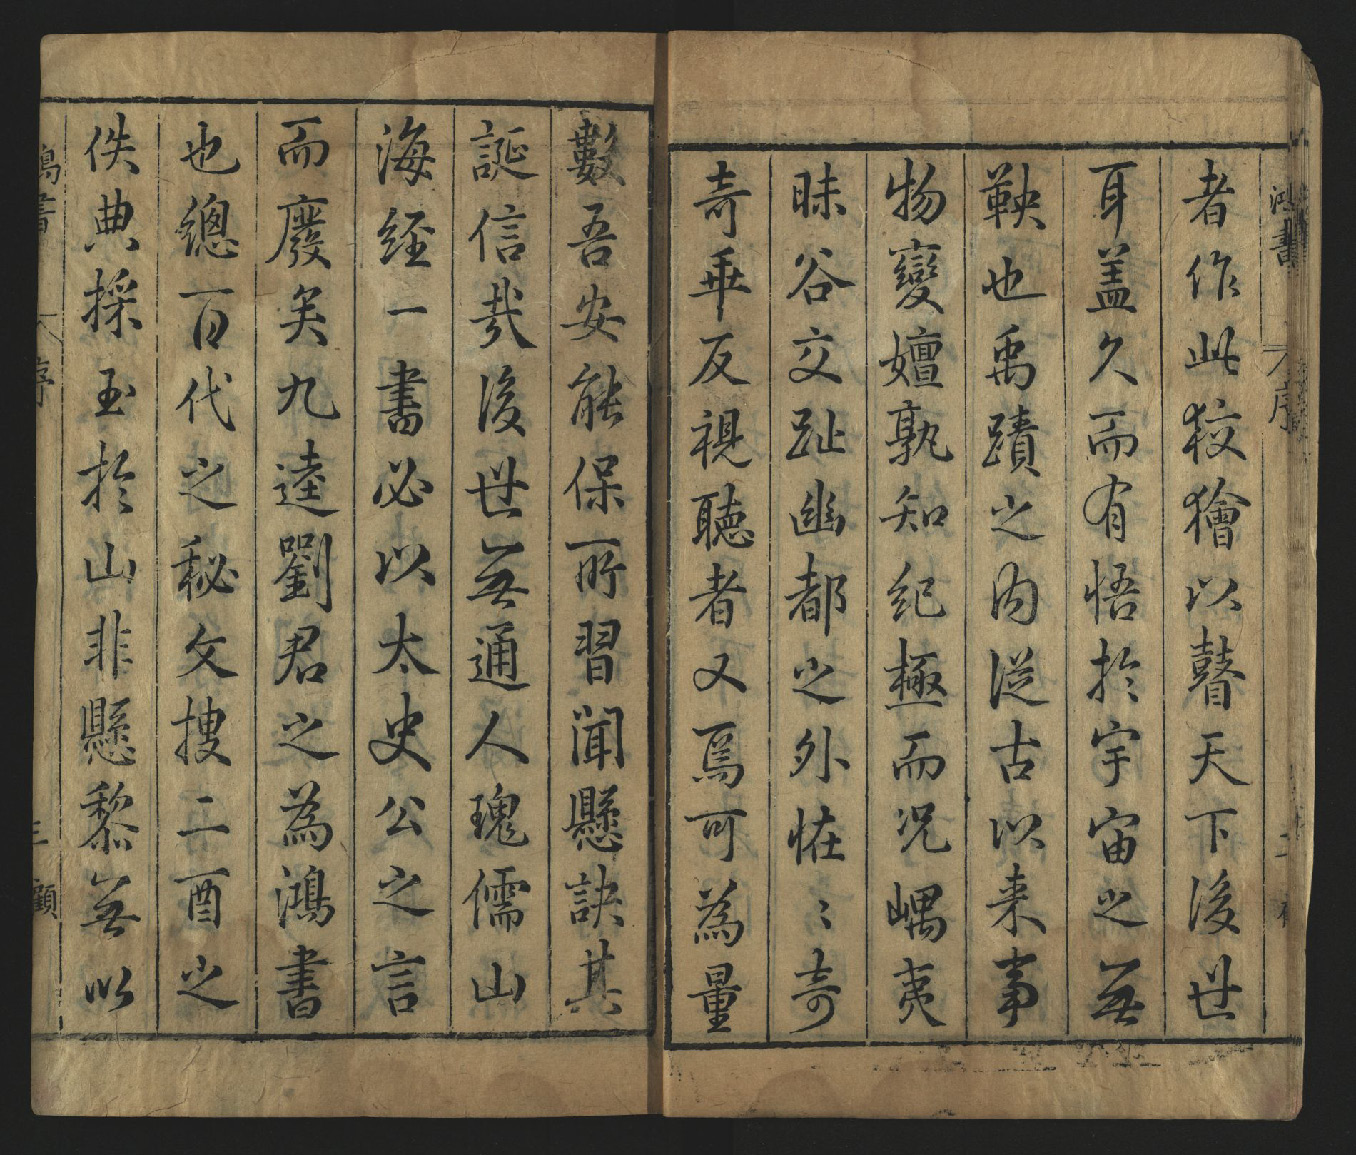 鴻書
序
二
者作此狡獪以瞽天下後世
耳盖久而有悟於宇宙之無
鞅也禹蹟之內從古以来事
物變嬗孰知紀極而况嵎夷
昧谷交趾幽都之外恠〻奇
奇華反視聽者又焉可為量
數吾安能保所習聞懸訣其
誕信哉後世無通人瑰儒山
海經一書必以太史公之言
而廢矣九逵劉君之為鴻書
也總百代之秘文搜二酉之
佚典採玉於山非懸黎無以
鴻書
序
三
顧